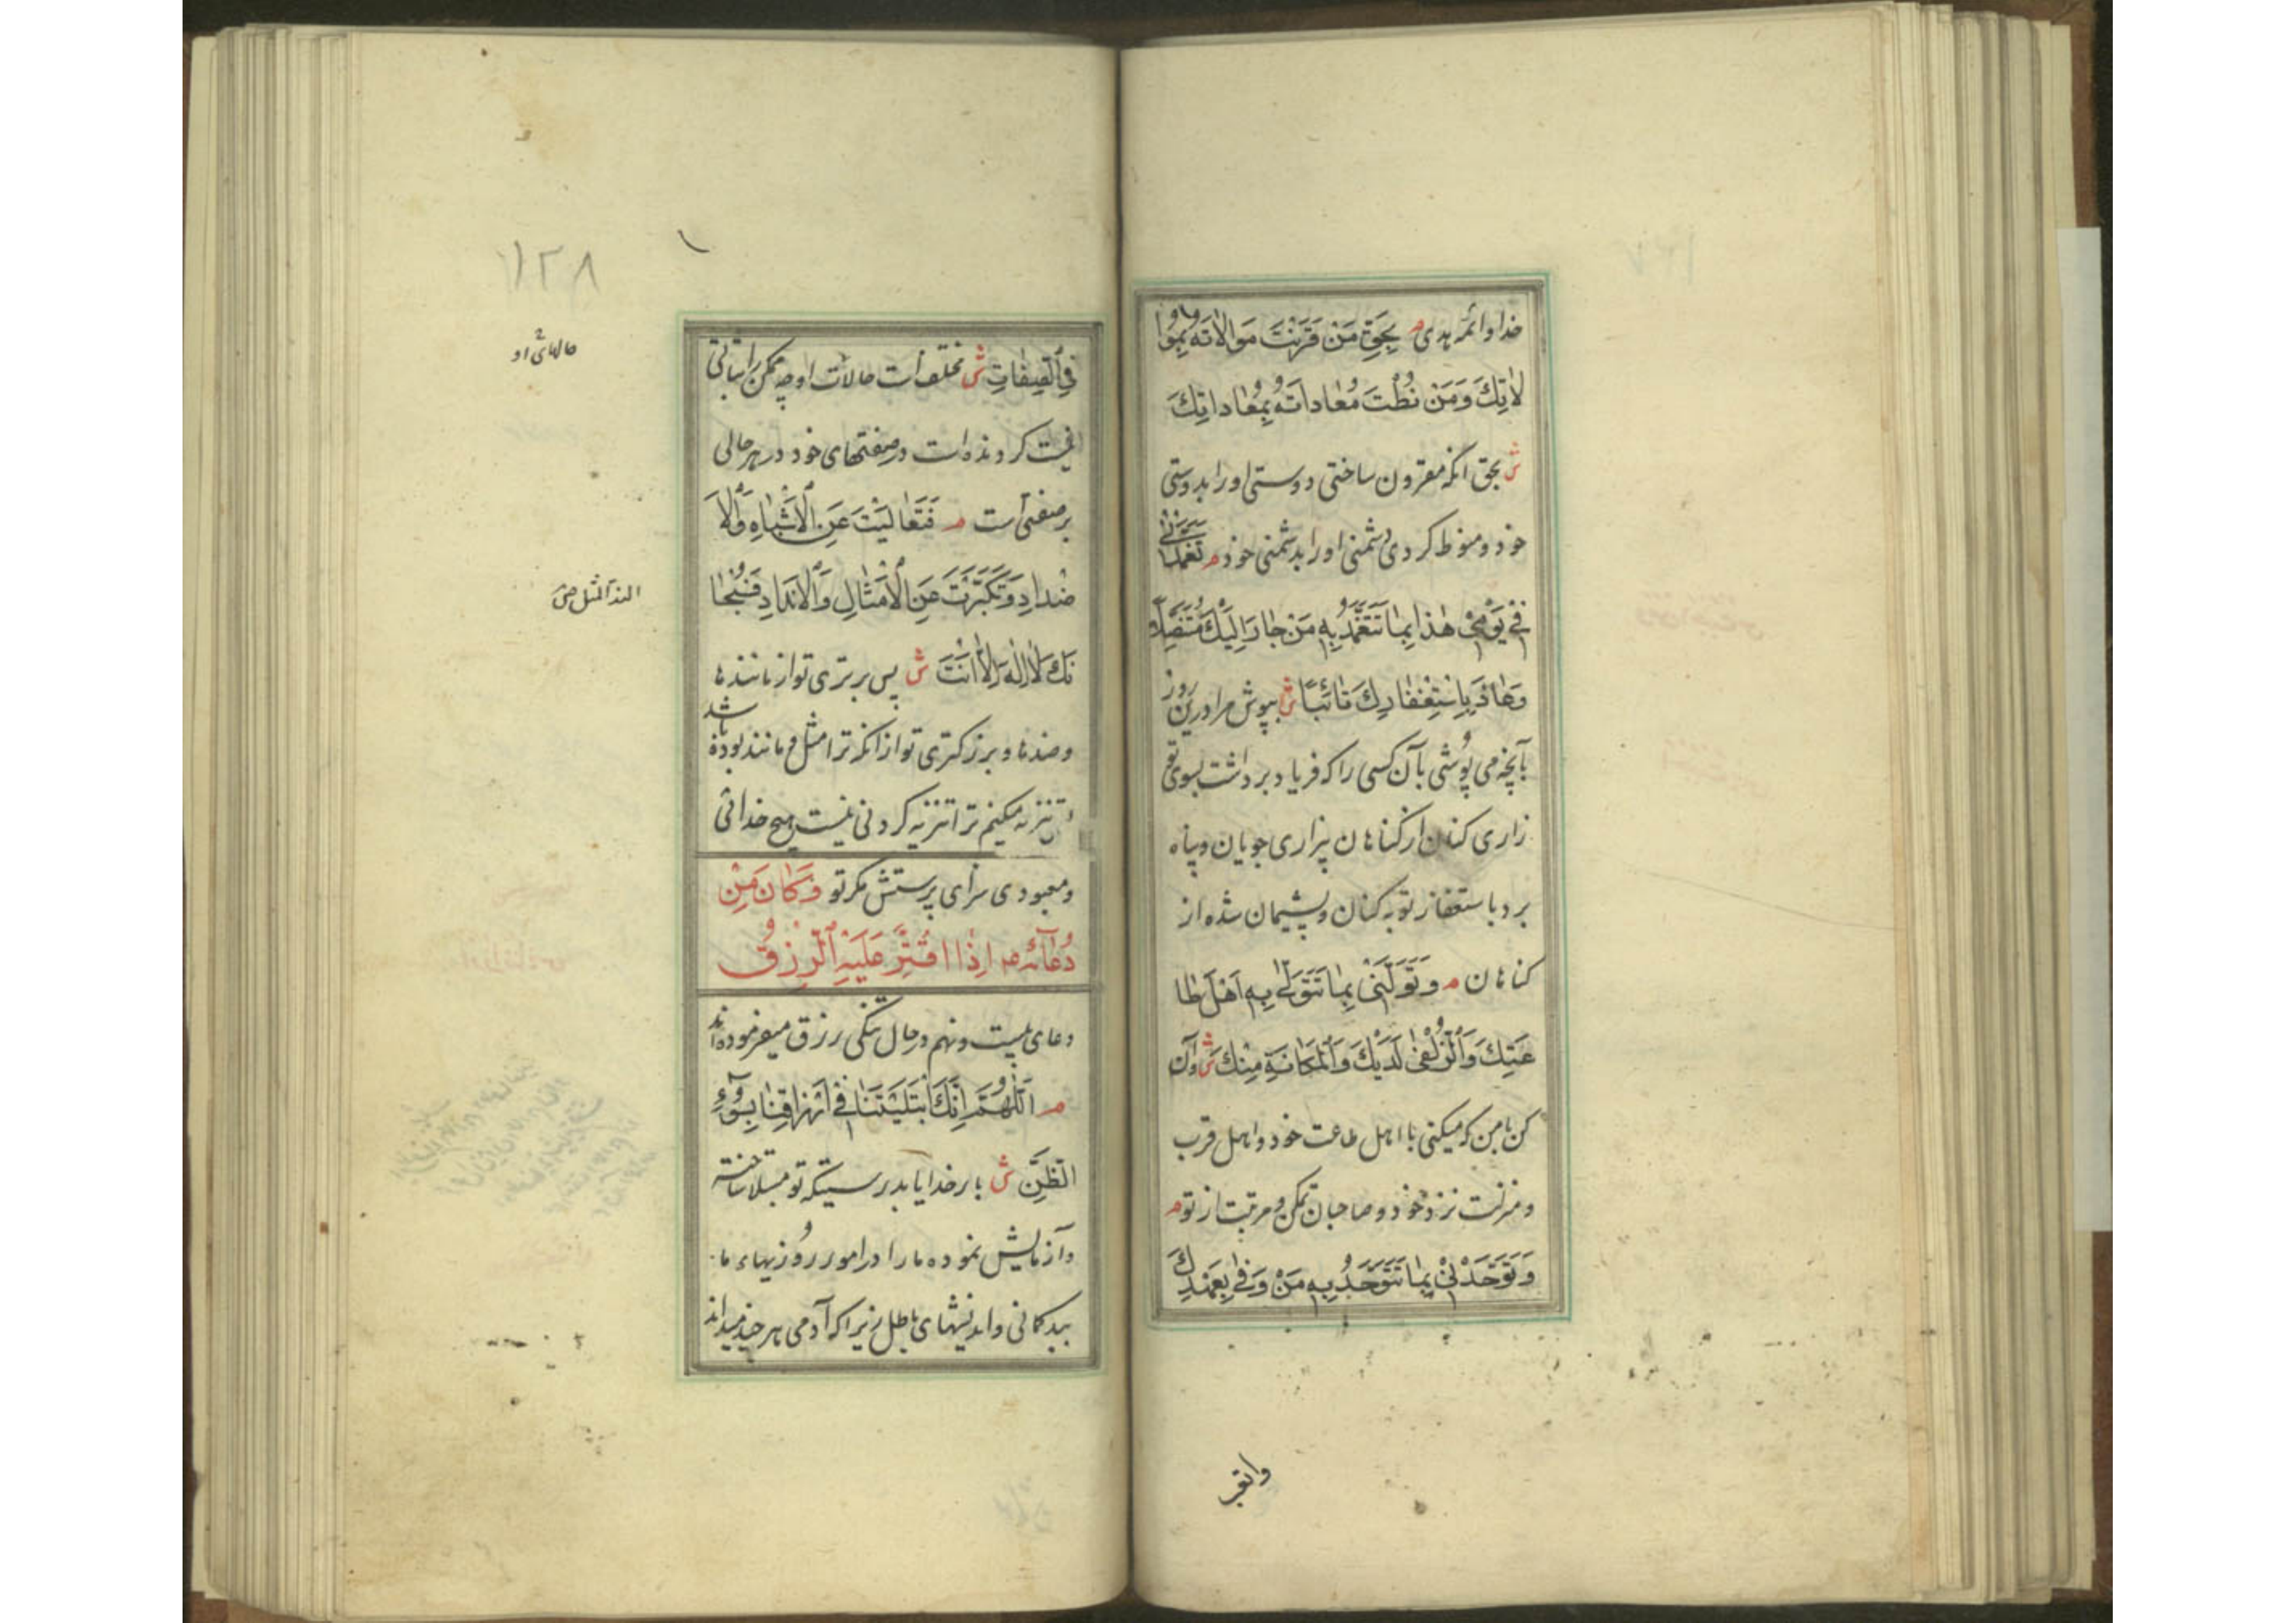 خدا و ائمه هدی م بِحَقِّ مَنْ قَرَنْتَ مَوالاتَهُ بِمُوا
لاتِكَ وَ مَنْ نُطْتَ مُعاداتَهُ بِمُعاداتِكَ
ش بحق آنکه مقرون ساختی دوستی او را بدوستی
خود و منوط کردی دشمنی او را بدشمنی خود م تَغَمَّدْنی
فی یَوْمی هٰذا بِما تَتَغَمَّدُ بِهِ مَنْ جارَ اِلَیْكَ مُتَنَصِّلاً
وَعاذَ بِاسْتِغْفارِكَ تائبًا ش بپوش مرا درین روز
بآنچه می پوشی بآن کسی را که فریاد برداشت بسوی تو
زاری کنان از کناهان بیزاری جویان و پناه
برد باستغفار توبه کنان و پشیمان شده از
کناهان م وَ تَوَلَّنی بِما تَتَوَلّی بِهِ اَهْلَ طا
عَتِكَ وَالزُّلْفیٰ لَدَیْكَ وَالْمَكانَةِ مِنْكَ ش و آن
کن با من که میکنی با اهل طاعت خود و اهل قرب
و منزلت نزد خود و صاحبان تمکن و مرتبت از تو م
وَ تَوَحَّدْنی بِما تَتَوَحَّدُ بِهِ مَنْ وَفیٰ بِعَهْدِكَ
۱۲۸
حالهای او
فِی الصِّفاتِ ش مختلف است حالات او چه ممکن را ثباتی
نیست کردنده است در صفتهای خود در هر حالی
بر صفتی است م فَتَعالَیْتَ عَنِ الْاَشْباهِ وَالْاَ
ضْدادِ وَ تَكَبَّرْتَ عَنِ الْاَمْثالِ وَالْاَنْدادِ فَسُبْحا
نَكَ لا اِلٰهَ اِلّا اَنْتَ ش پس برتری تو از مانندها
و ضدها و بزرکتری تو از انکه ترا مثل و مانند بوده باشد
تنزیه میکنیم ترا تنزیه کردنی نیست هیچ خدائی
و معبودی سزای پرستش مکر تو وَ كانَ مِنْ
دُعائِهِ ع اِذا اقْتُتِّرَ عَلَیْهِ الرِّزْقُ
دعای بیست و نهم در حال تنکی رزق میفرموده اند
م اَللّٰهُمَّ اِنَّكَ ابْتَلَیْتَنا فی اَرْزاقِنا بِسُوءِ
الظَّنِّ ش بار خدایا بدرستیکه تو مبتلا ساخته
و آزمایش نموده ما را در امور روزیهاء ما
ببدکمانی و اندیشهای باطل زیرا که آدمی هر چند میداند